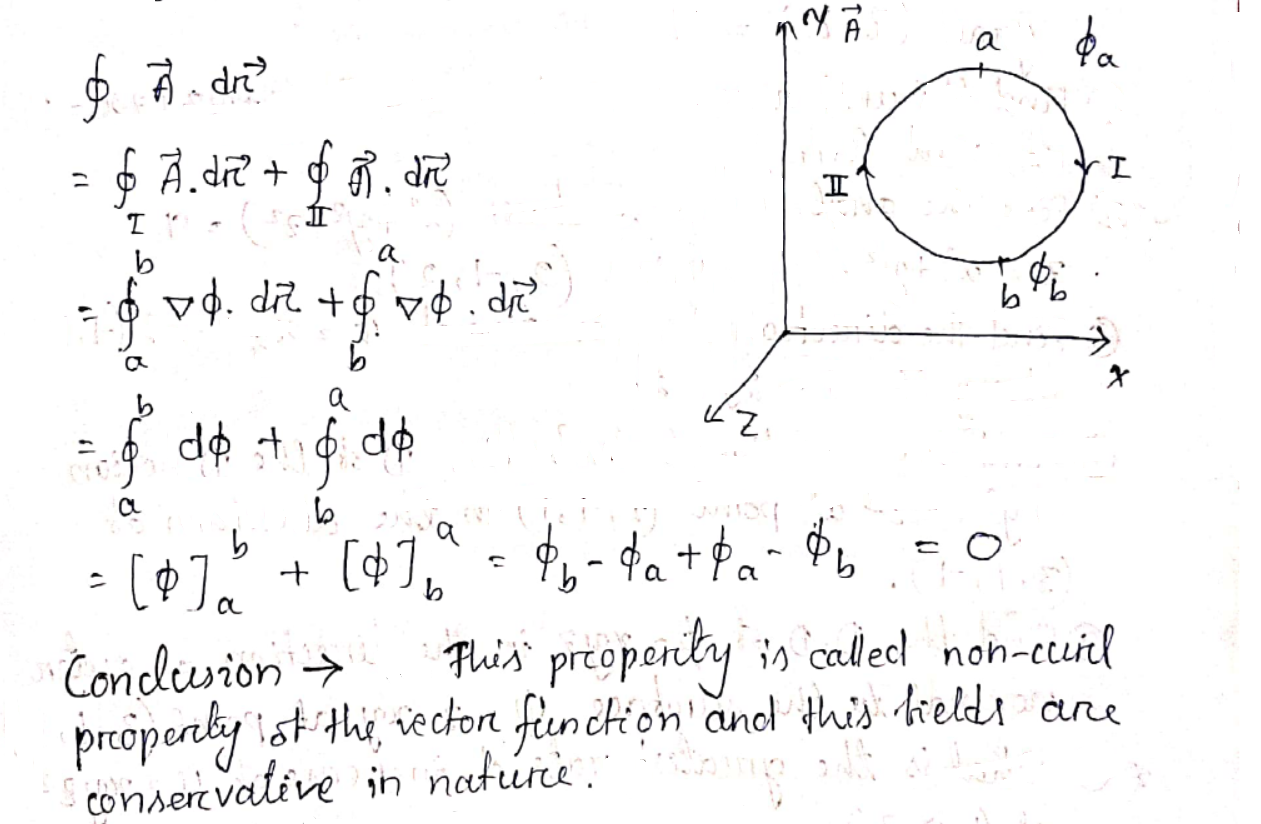 ∮ A⃗ . dr⃗
= ∮_I A⃗ . dr⃗ + ∮_II A⃗ . dr⃗
= ∮_a^b ∇ϕ . dr⃗ + ∮_b^a ∇ϕ . dr⃗
= ∮_a^b dϕ + ∮_b^a dϕ
= [ϕ]_a^b + [ϕ]_b^a = ϕ_b - ϕ_a + ϕ_a - ϕ_b = 0
Conclusion → This property is called non-curl
property of the vector function and this fields are
conservative in nature.
y A⃗
a ϕ_a
II I
b ϕ_b
x
z